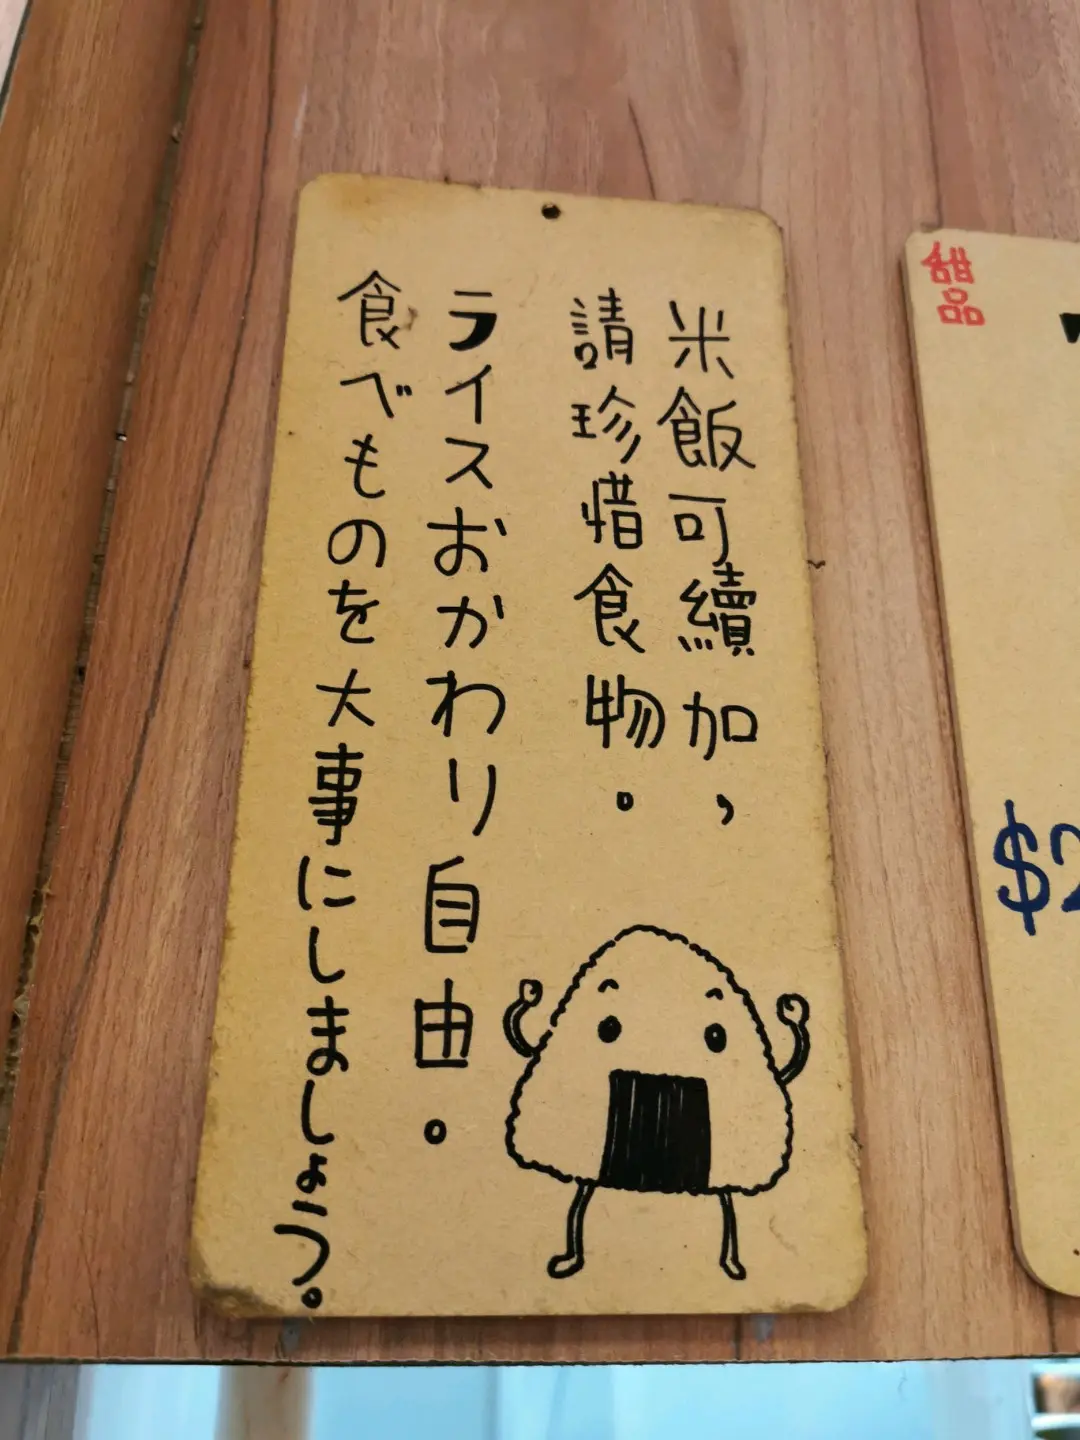 米飯可續加，
請珍惜食物。
ライスおかわり自由。
食べものを大事にしましょう。
甜品
$2